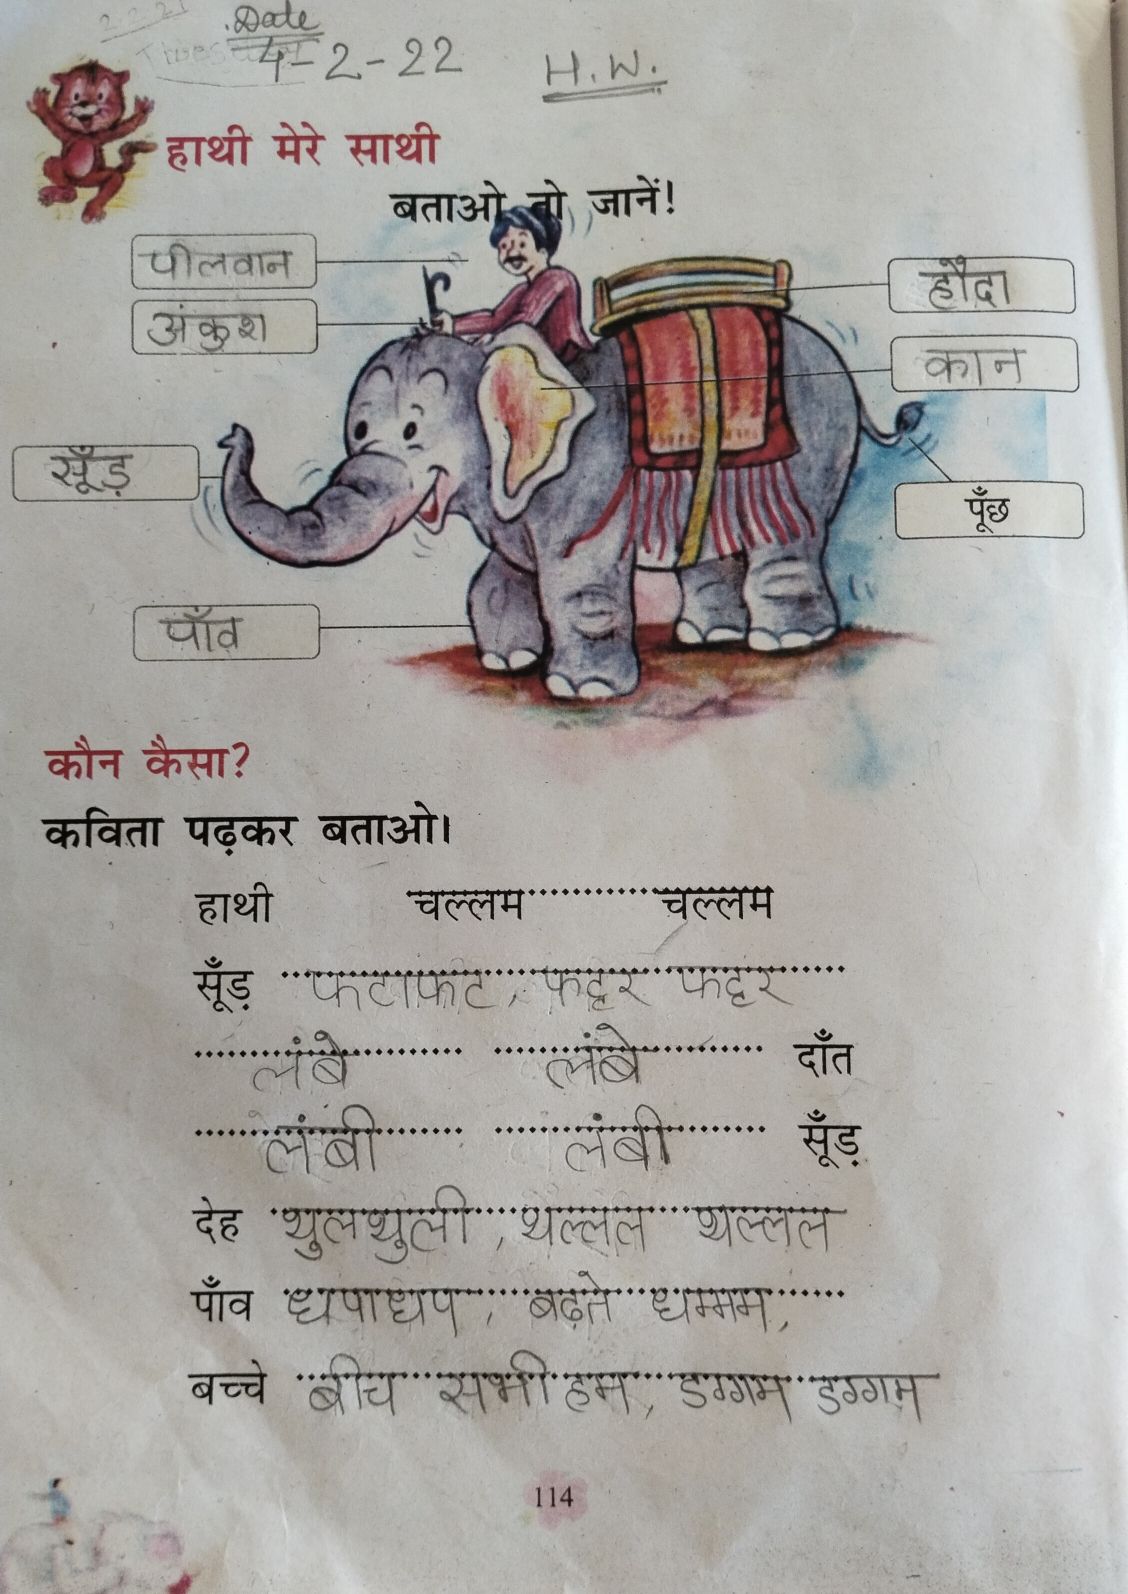 Date
4-2-22 H.W.
हाथी मेरे साथी
बताओ तो जानें!
पीलवान
हौदा
अंकुश
कान
सूँड़
पूँछ
पाँव
कौन कैसा?
कविता पढ़कर बताओ।
हाथी चल्लम चल्लम
सूँड़ फटाफट, फट्टर फट्टर
लंबे लंबे दाँत
लंबी लंबी सूँड़
देह थुलथुली, थल्लल थल्लल
पाँव धपाधप, बढ़ते धम्मम,
बच्चे बीच सभी हम, डग्गम डग्गम
114